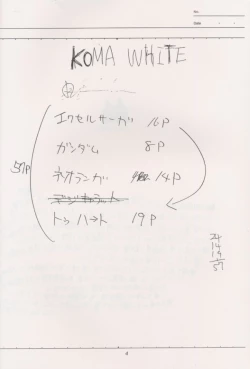 No.
Date
KOMA WHITE
エクセルサーガ 16P
ガンダム 8P
ネオランガ 14P
トゥハート 19P
57P
24
14
19
57
4